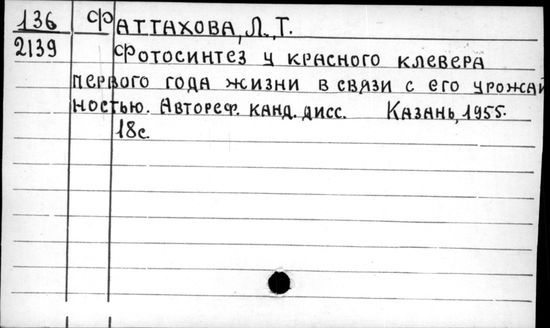 136 ФАТТАХОВА, Л.Т.
2139 Фотосинтез у красного клевера
первого года жизни в связи с его урожай
ностью. Автореф. канд. дисс. Казань, 1955.
18с.